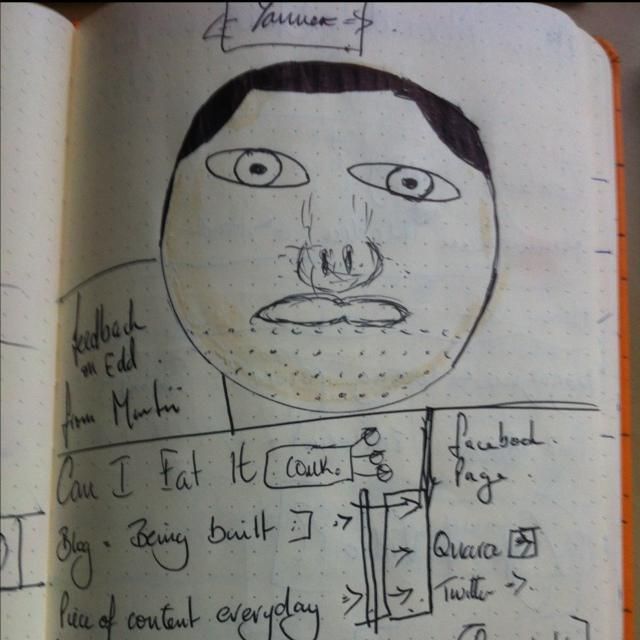 feedback
on Edd
from Martin
Can I Eat It
facebook
Page
Blog. Being built
Quora
Twitter
Piece of content everyday